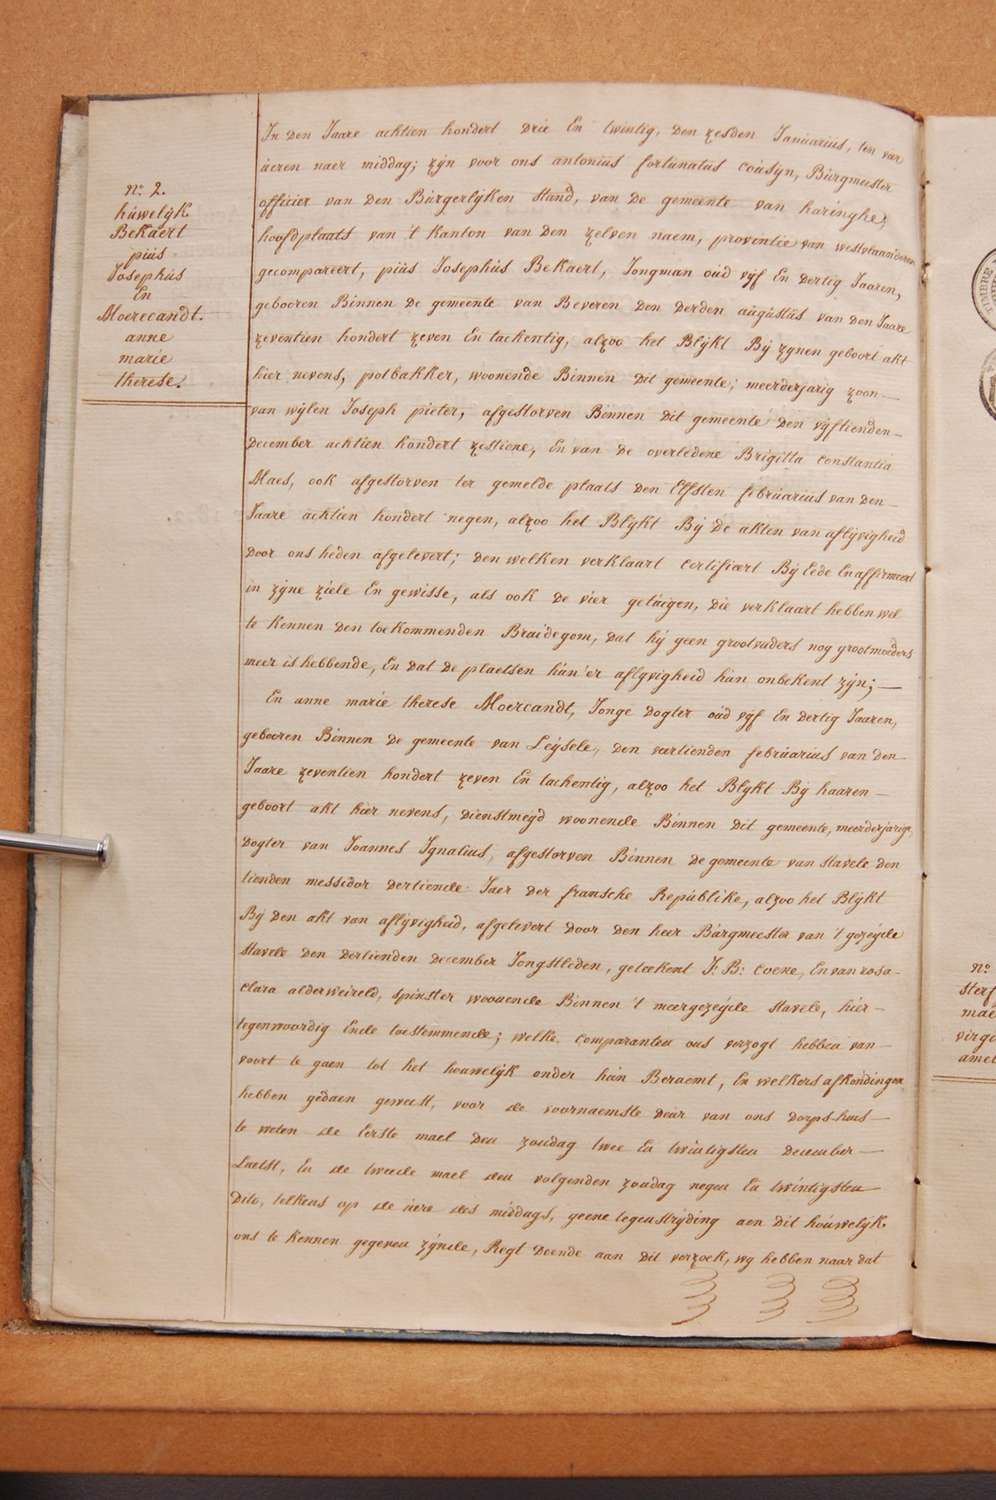 N.º 2.
húwelijk
BeKaert
piús
Josephús
En
Moerecandt.
anne
marie
therese.
In Den Jaare achtien hondert Drie En twintig, Den zesden Janúariús, ten vier
úeren naer middag; zÿn voor ons antoniús fortúnatús coúsÿn, Búrgmeester
officier van Den Búrgerlÿken Stand, van De gemeente van haringhe,
hoofdplaats van 't Kanton van Den zelven naem, proventie van westvlaanderen
gecompareert, piús Josephús BeKaert, Jongman oúd vÿf En Dertig Jaaren,
gebooren Binnen De gemeente van Beveren Den Derden aúgústús van Den Jaare
zeventien hondert zeven En tachentig, alzoo het Blÿkt Bÿ zÿnen geboort akt
hier nevens, potbakker, woonende Binnen Dit gemeente; meerderjarig zoon
van wÿlen Joseph pieter, afgestorven Binnen Dit gemeente Den vÿftienden
December achtien hondert zestiene, En van De overledene Brigitta Constantia
Maes, ook afgestorven ter gemelde plaats Den Elfsten febrúariús van Den
Jaare achtien hondert negen, alzoo het Blÿkt Bÿ De akten van aflÿvigheid
Door ons heden afgelevert; Den welken verklaart Certifieert Bÿ Eede En affirmeert
in zÿne ziele En gewisse, als ook De vier getúigen, Die verklaart hebben wel
te kennen Den toekommenden Braidegom, Dat hÿ geen grootvaders nog grootmoeders
meer is hebbende, En Dat De plaetsen hún'er aflÿvigheid hún onbekent zÿn;
En anne marie therese Moerecandt, Jonge Dogter oúd vÿf En Dertig Jaaren,
gebooren Binnen De gemeente van Leÿsele, Den veertienden febrúarius van Den
Jaare zeventien hondert zeven En tachentig, alzoo het Blÿkt Bÿ haaren
geboort akt hier nevens, Dienstmeÿd woonende Binnen Dit gemeente, meerderjarige
Dogter van Joannes Ignatius, afgestorven Binnen De gemeente van Stavele Den
tienden messidor Dertiende Jaer Der fransche Repúblike, alzoo het Blÿkt
Bÿ Den akt van aflÿvigheid, afgelevert Door Den heer Búrgmeester van 't gezeÿde
Stavele Den Dertienden December Jongstleden, geteekent J: B: Coene, En van rosa
Clara alderweireld, Spinster woonende Binnen 't meergezeÿde Stavele, hier
tegenwoordig Ende toestemmende; welke Comparanten ons verzogt hebben van
voort te gaen tot het houwelÿk onder hún Beraemt, En welkers afkondingen
hebben gedaen geweest, voor de voornaemste Deúr van ons Dorps-hús
te weten de Eerste mael Den zondag twee En twintigsten December
Laetst, En de tweede mael den volgenden zondag negen En twintigsten
Dito, telkens op de úere des middags, geene tegenstrÿding aen Dit hoúwelÿk
ons te kennen gegeven zÿnde, Regt Doende aan Dit verzoek, wÿ hebben naar Dat
N.º
Sterf
mae
virgi
amel
TIMBRE